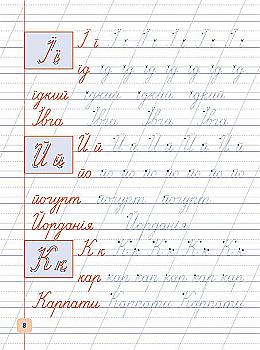 Її
Ї ї Ї ї Ї ї Ї ї Ї ї Ї ї
їд їд їд їд їд їд їд їд
їдкий їдкий їдкий
Ївга Ївга Ївга
Йй
Й й Й й Й й Й й Й й
йо йо йо йо йо йо йо
йогурт йогурт йогурт
Йорданія Йорданія
Кк
К к К к К к К к К к
кар кар кар кар кар кар
Карпати Карпати Карпати
8